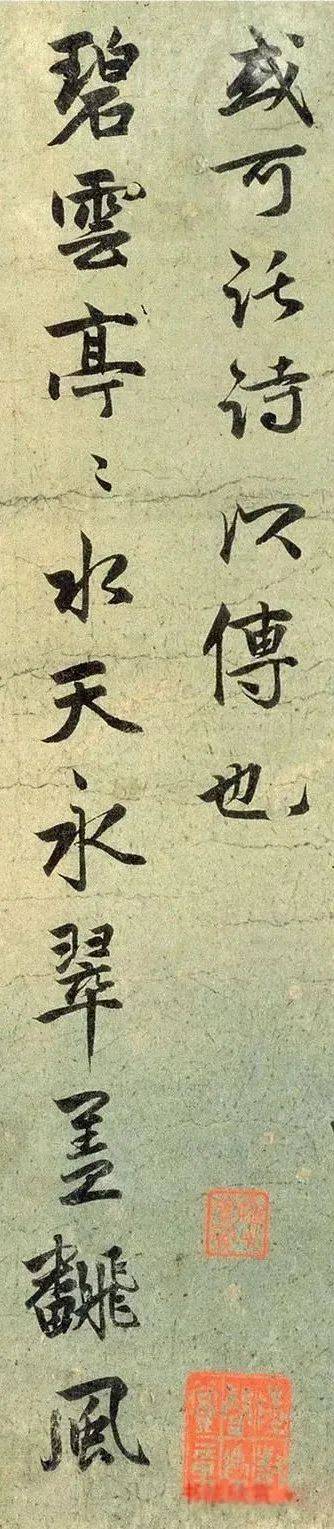 或可話詩以傳也
碧雲亭〻水天永翠蓋飜風